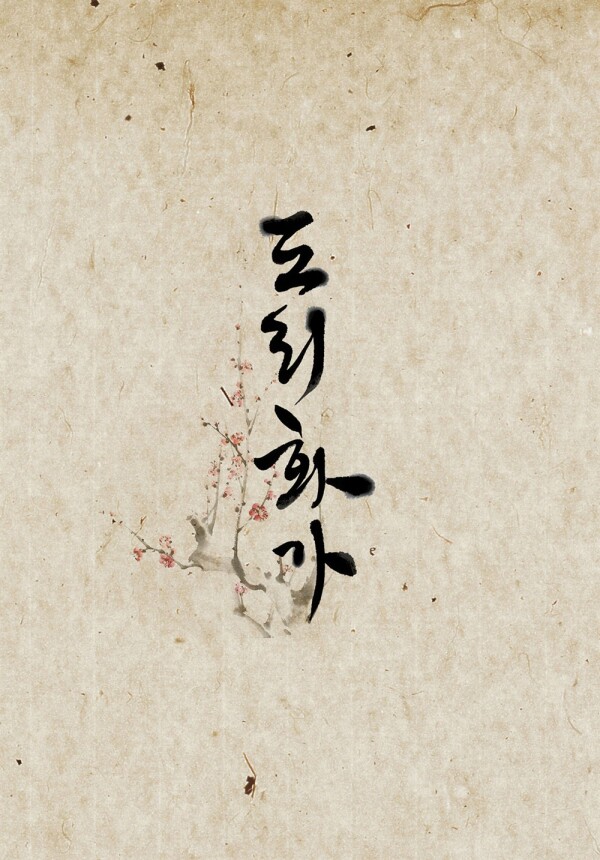 도리화가